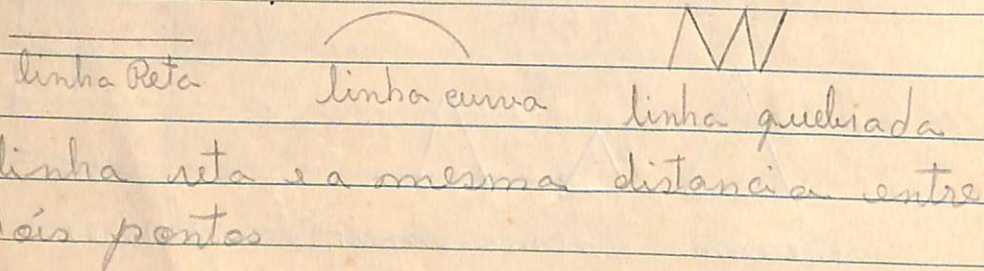 linha Reta linha curva linha quebrada
linha reta e a mesma distancia entre
ois pontos